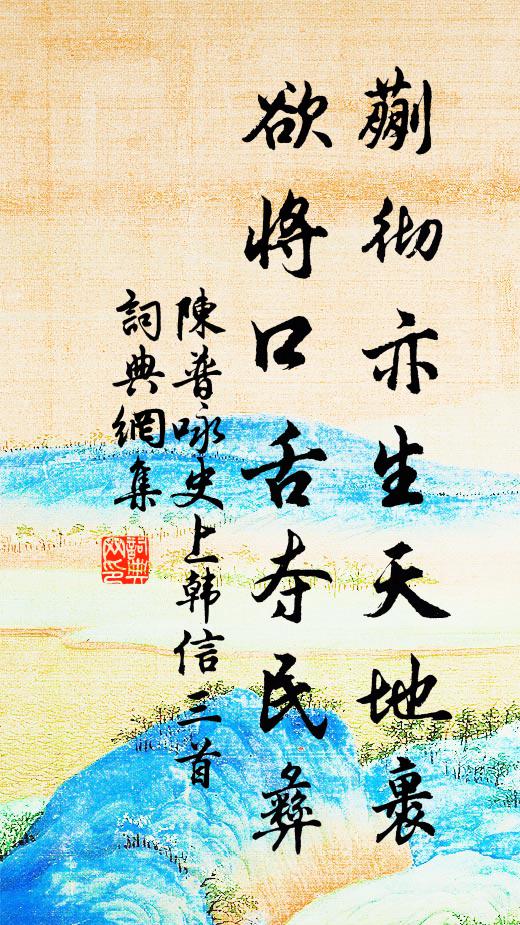 蒯彻亦生天地裏
欲将口舌夺民彝
陳普咏史上韩信三首
詞典網集